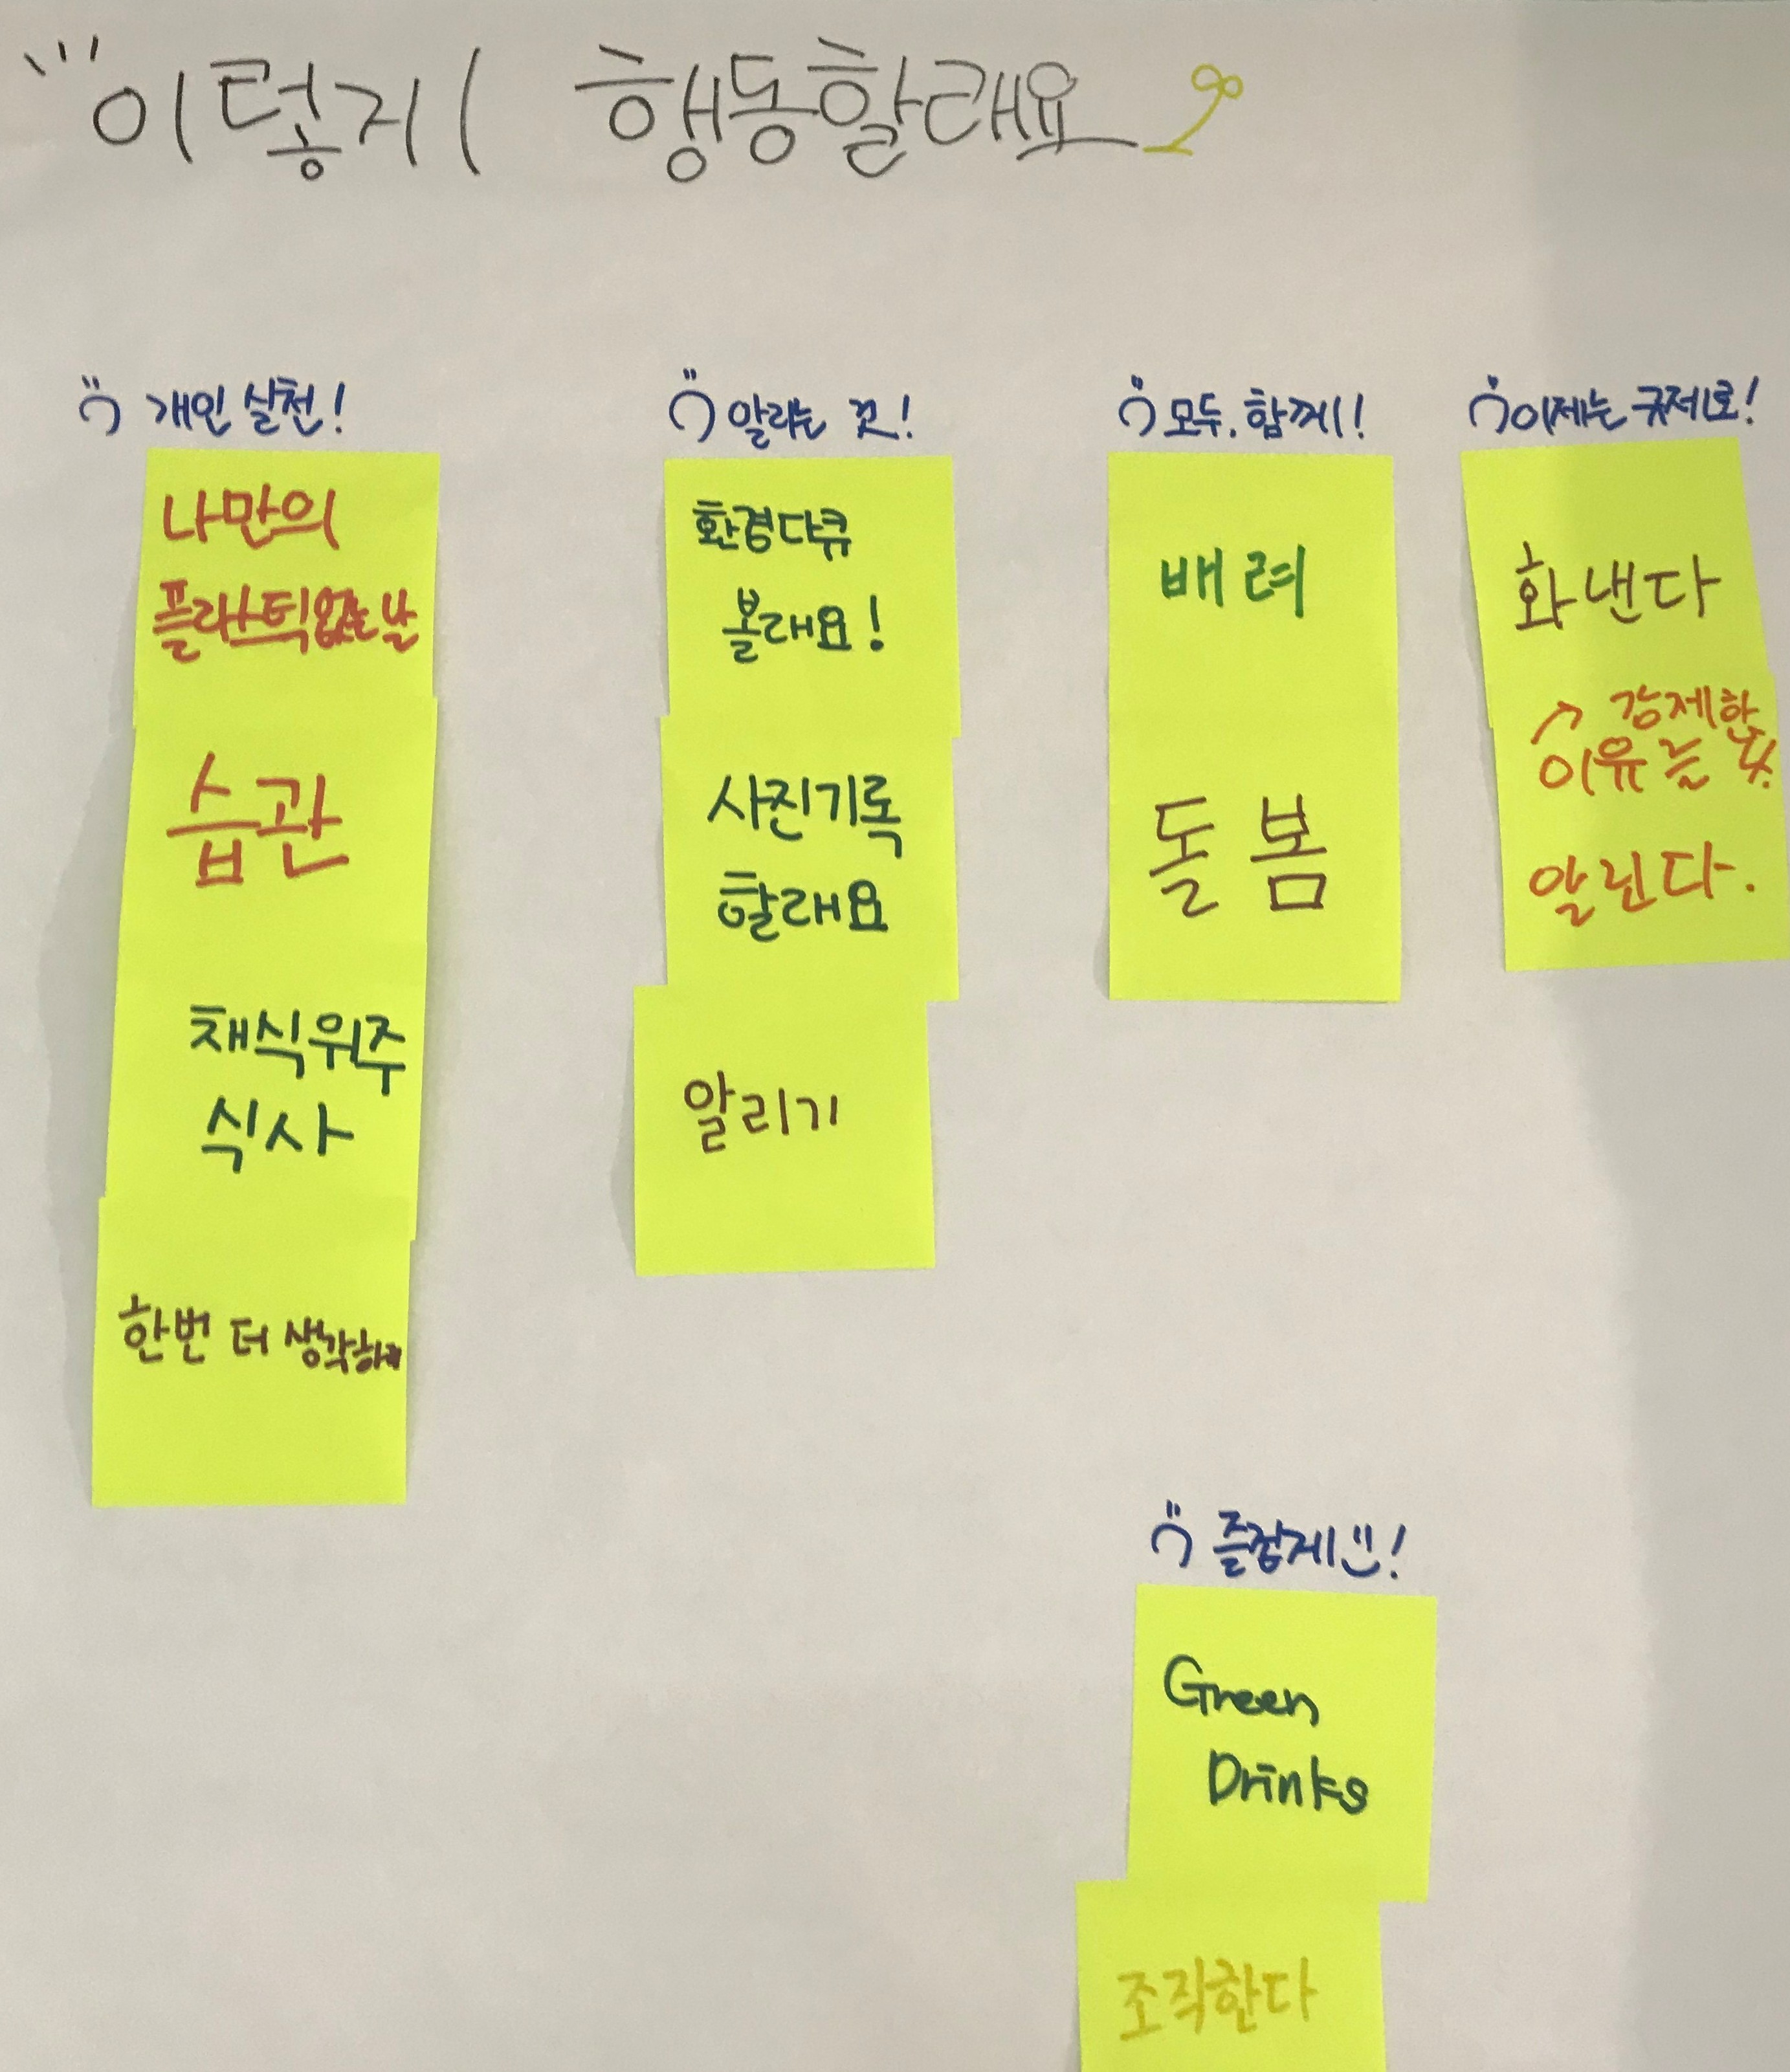 이렇게 행동할래요
개인 실천!
나만의
플라스틱없는날
습관
채식위주
식사
한번 더 생각하기
알리는 것!
환경다큐
볼래요!
사진기록
할래요
알리기
모두. 함께!
배려
돌봄
이제는 규제로!
화낸다
강제한
이유를
알린다.
즐겁게!
Green
Drinks
조직한다